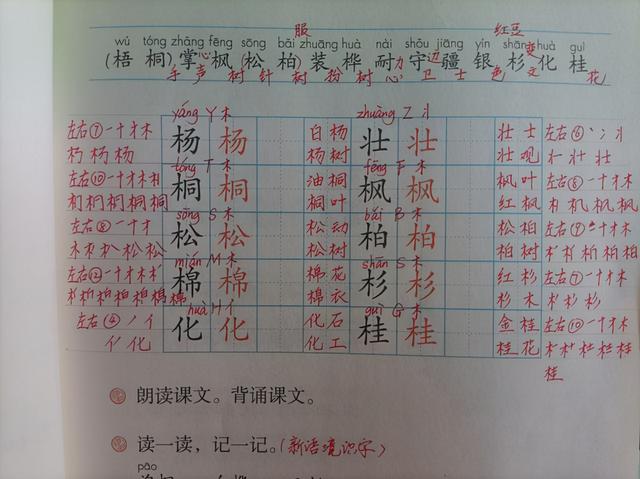 服 红豆
wú tóng zhǎng fēng sōng bǎi zhuāng huà nài shǒu jiāng yín shān huà guì
(梧桐)掌枫(松柏)装桦耐守疆银杉化桂
手 声 心 树 针 树 粉 树 心 力 卫 边 土 色 变 文 花
yáng Y 木 zhuàng Z 丬
左右⑦一十才木 杨 杨 白杨 壮 壮 壮士 左右⑥丶冫丬
杨 杨 杨树 壮观 壮 壮
tóng T 木 fēng F 木
左右⑩一十才木 桐 桐 油桐 枫 枫 枫叶 左右⑧一十才木
桐 桐 桐 桐叶 红枫 机 枫 枫
sōng S 木 bǎi B 木
左右⑧一十才 松 松 松动 柏 柏 松柏 左右⑨一十才木
木 松 松 松树 柏树 柏 柏
mián M 木 shān S 木
左右⑫一十才木 棉 棉 棉花 杉 杉 红杉 左右⑦一十才木
棉 棉 棉衣 杉木 杉 杉
huà H 亻 guì G 木
左右④ノ亻 化 化 化石 桂 桂 金桂 左右⑩一十才木
化 化工 桂花 桂
桂
朗读课文。背诵课文。
读一读，记一记。(新语境识字)
pāo